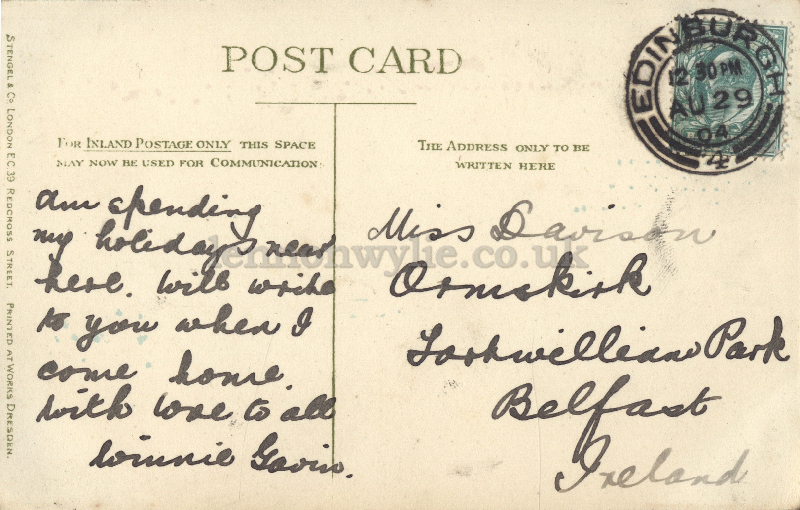 POST CARD
FOR INLAND POSTAGE ONLY THIS SPACE
MAY NOW BE USED FOR COMMUNICATION.
THE ADDRESS ONLY TO BE
WRITTEN HERE
EDINBURGH
12 30 PM
AU 29
04
4
Am spending
my holidays near
here. Will write
to you when I
come home.
With love to all
Winnie Gavin.
Miss Davison
Ormskirk
Fortwilliam Park
Belfast
Ireland
STENGEL & Co LONDON E.C. 39 REDCROSS STREET. PRINTED AT WORKS DRESDEN.
lennonwylie.co.uk